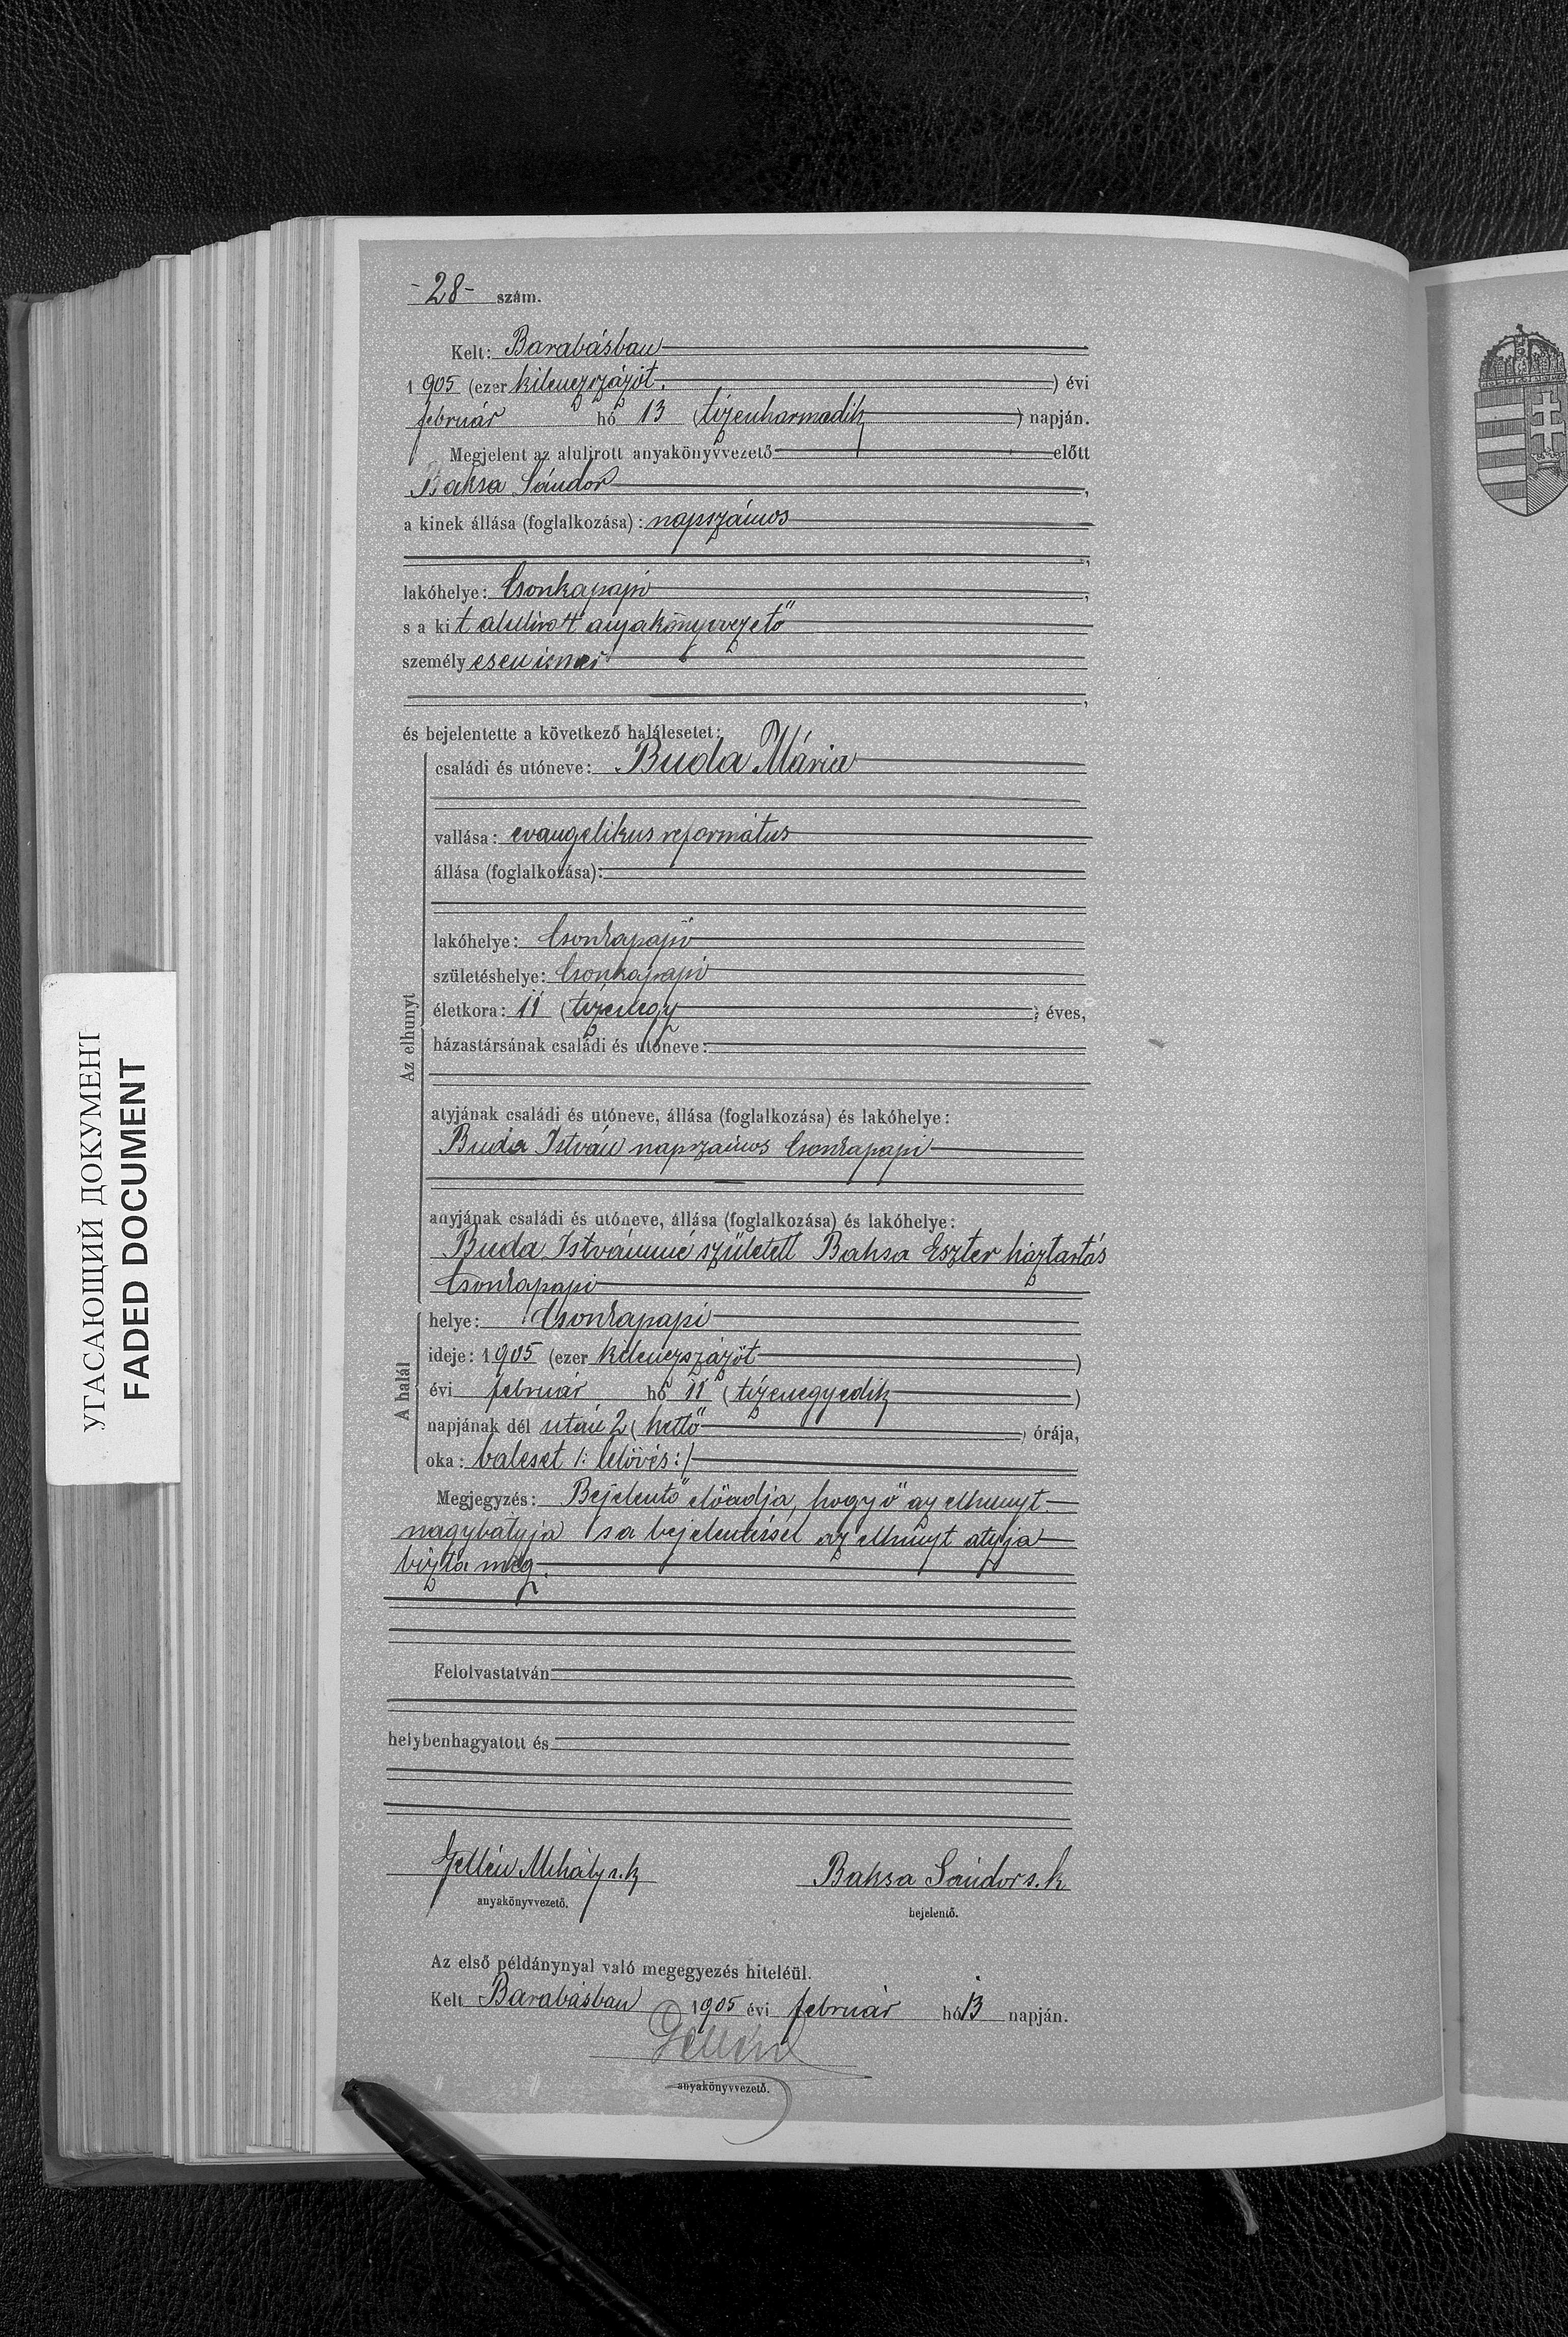 -28- szám.
Kelt: Barabásban
1905 (ezer kilenczszázöt.) évi
február hó 13 (tizenharmadik) napján.
Megjelent az alulirott anyakönyvvezető előtt
Baksa Sándor,
a kinek állása (foglalkozása): napszámos
lakóhelye: Csonkapapi,
s a kit alulirott anyakönyvvezető
személyesen ismer
és bejelentette a következő halálesetet:
Az elhunyt
családi és utóneve: Buda Mária
vallása: evangelikus református
állása (foglalkozása):
lakóhelye: Csonkapapi
születéshelye: Csonkapapi
életkora: 11 (tizenegy) éves,
házastársának családi és utóneve:
atyjának családi és utóneve, állása (foglalkozása) és lakóhelye:
Buda István napszámos Csonkapapi
anyjának családi és utóneve, állása (foglalkozása) és lakóhelye:
Buda Istvánné született Baksa Eszter háztartás
Csonkapapi
A halál
helye: Csonkapapi
ideje: 1905 (ezer kilenczszázöt)
évi február hó 11 (tizenegyedik)
napjának dél után 2 (kettő) órája,
oka: baleset /: lelövés :/
Megjegyzés: Bejelentő előadja, hogy ő az elhunyt
nagybátyja s a bejelentéssel az elhunyt atyja
bizta meg.
Felolvastatván
helybenhagyatott és
Gellén Mihály s. k
anyakönyvvezető.
Baksa Sándor s. k
bejelentő.
Az első példánynyal való megegyezés hiteléül.
Kelt Barabásban 1905 évi február hó 13 napján.
Gellén
anyakönyvvezető.
УГАСАЮЩИЙ ДОКУМЕНТ
FADED DOCUMENT